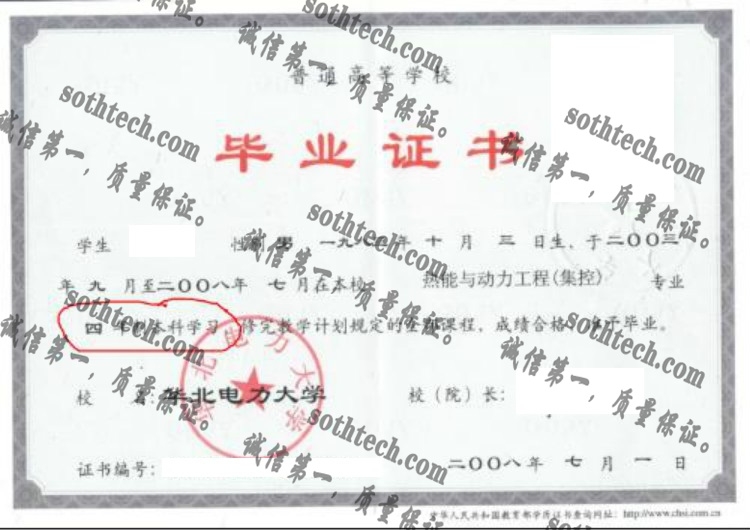 普通高等学校
毕业证书
学生 性别 男, 一九八 年 十 月 三 日生, 于二〇〇三
年 九 月至二〇〇八年 七 月在本校 热能与动力工程(集控) 专业
四 年制本科学习, 修完教学计划规定的全部课程, 成绩合格, 准予毕业。
校 名: 华北电力大学 校(院)长:
华北电力大学
证书编号: 二〇〇八年 七 月 一 日
中华人民共和国教育部学历证书查询网址: http://www.chsi.com.cn
sothtech.com
诚信第一,质量保证。
sothtech.com
诚信第一,质量保证。
sothtech.com
诚信第一,质量保证。
sothtech.com
诚信第一,质量保证。
sothtech.com
诚信第一,质量保证。
sothtech.com
诚信第一,质量保证。
sothtech.com
诚信第一,质量保证。
sothtech.com
诚信第一,质量保证。